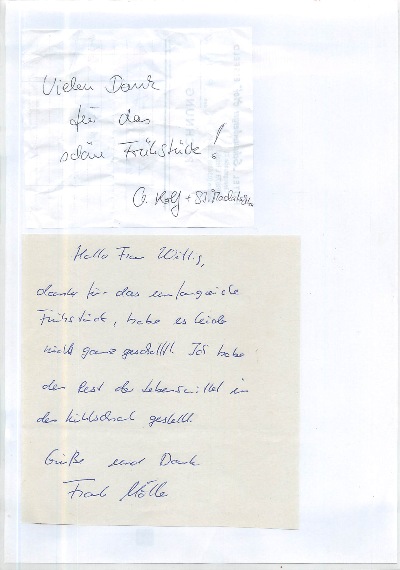 Vielen Dank
für das
schöne Frühstück!
Hallo Frau Willig,
danke für das umfangreiche
Frühstück, habe es leider
nicht ganz geschafft. Ich habe
den Rest der Lebensmittel in
den Kühlschrank gestellt.
Grüße und Dank
Frank Möller